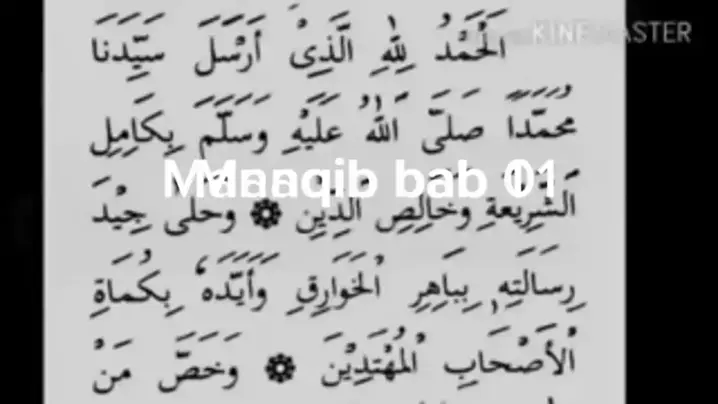 KINEMASTER
اَلْحَمْدُ لِلّٰهِ الَّذِيْ أَرْسَلَ سَيِّدَنَا
مُحَمَّدًا صَلَّى اللّٰهُ عَلَيْهِ وَسَلَّمَ بِكَامِلِ
Manaqib bab 01
الشَّرِيْعَةِ وَخَالِصِ الدِّيْنِ ۞ وَحَلَّى جِيْدَ
رِسَالَتِهٖ بِبَاهِرِ الْخَوَارِقِ وَأَيَّدَهٗ بِكُمَاةِ
الْأَصْحَابِ الْمُهْتَدِيْنَ ۞ وَخَصَّ مَنْ